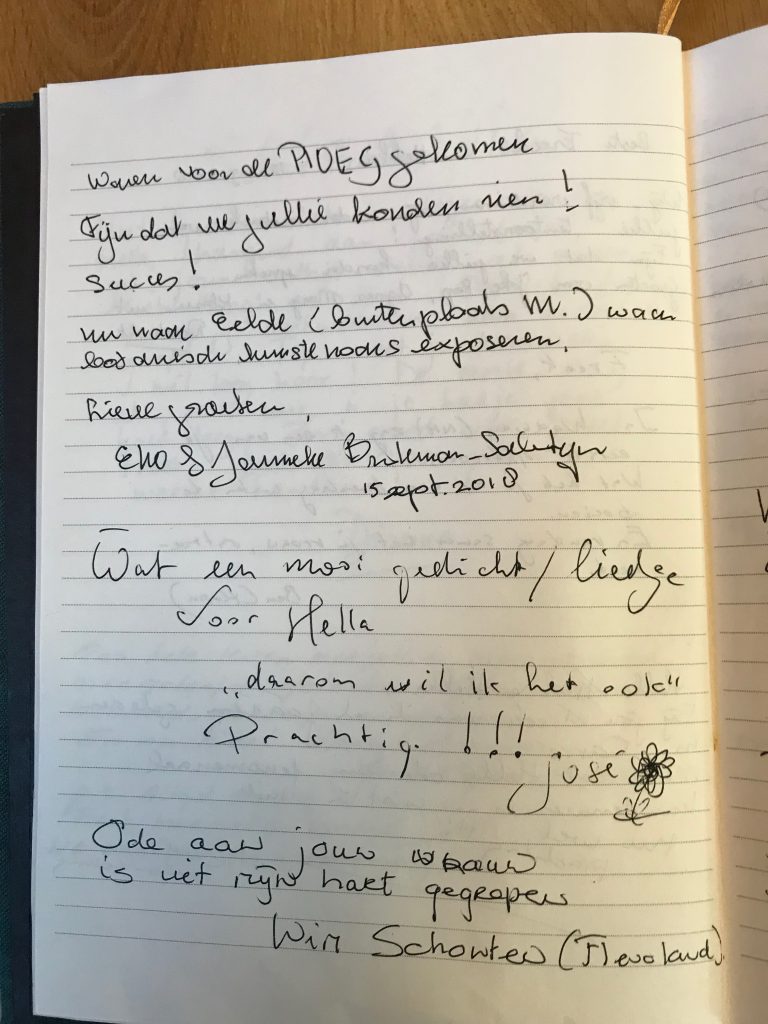 waren voor de PJDEG gekomen
Fijn dat we jullie konden zien!
succes!
nu naar Eelde (buitenplaats M.) waar
botanisch kunstenaars exposeren.
Lieve groeten,
Eko & Janneke
15 sept. 2018
Wat een mooi gedicht/liedje
voor Hella
„daarom wil ik het ook"
Prachtig. !!!
José
Ode aan jouw vrouw
is uit mijn hart gegrepen
Wim Schouten (Flevoland)